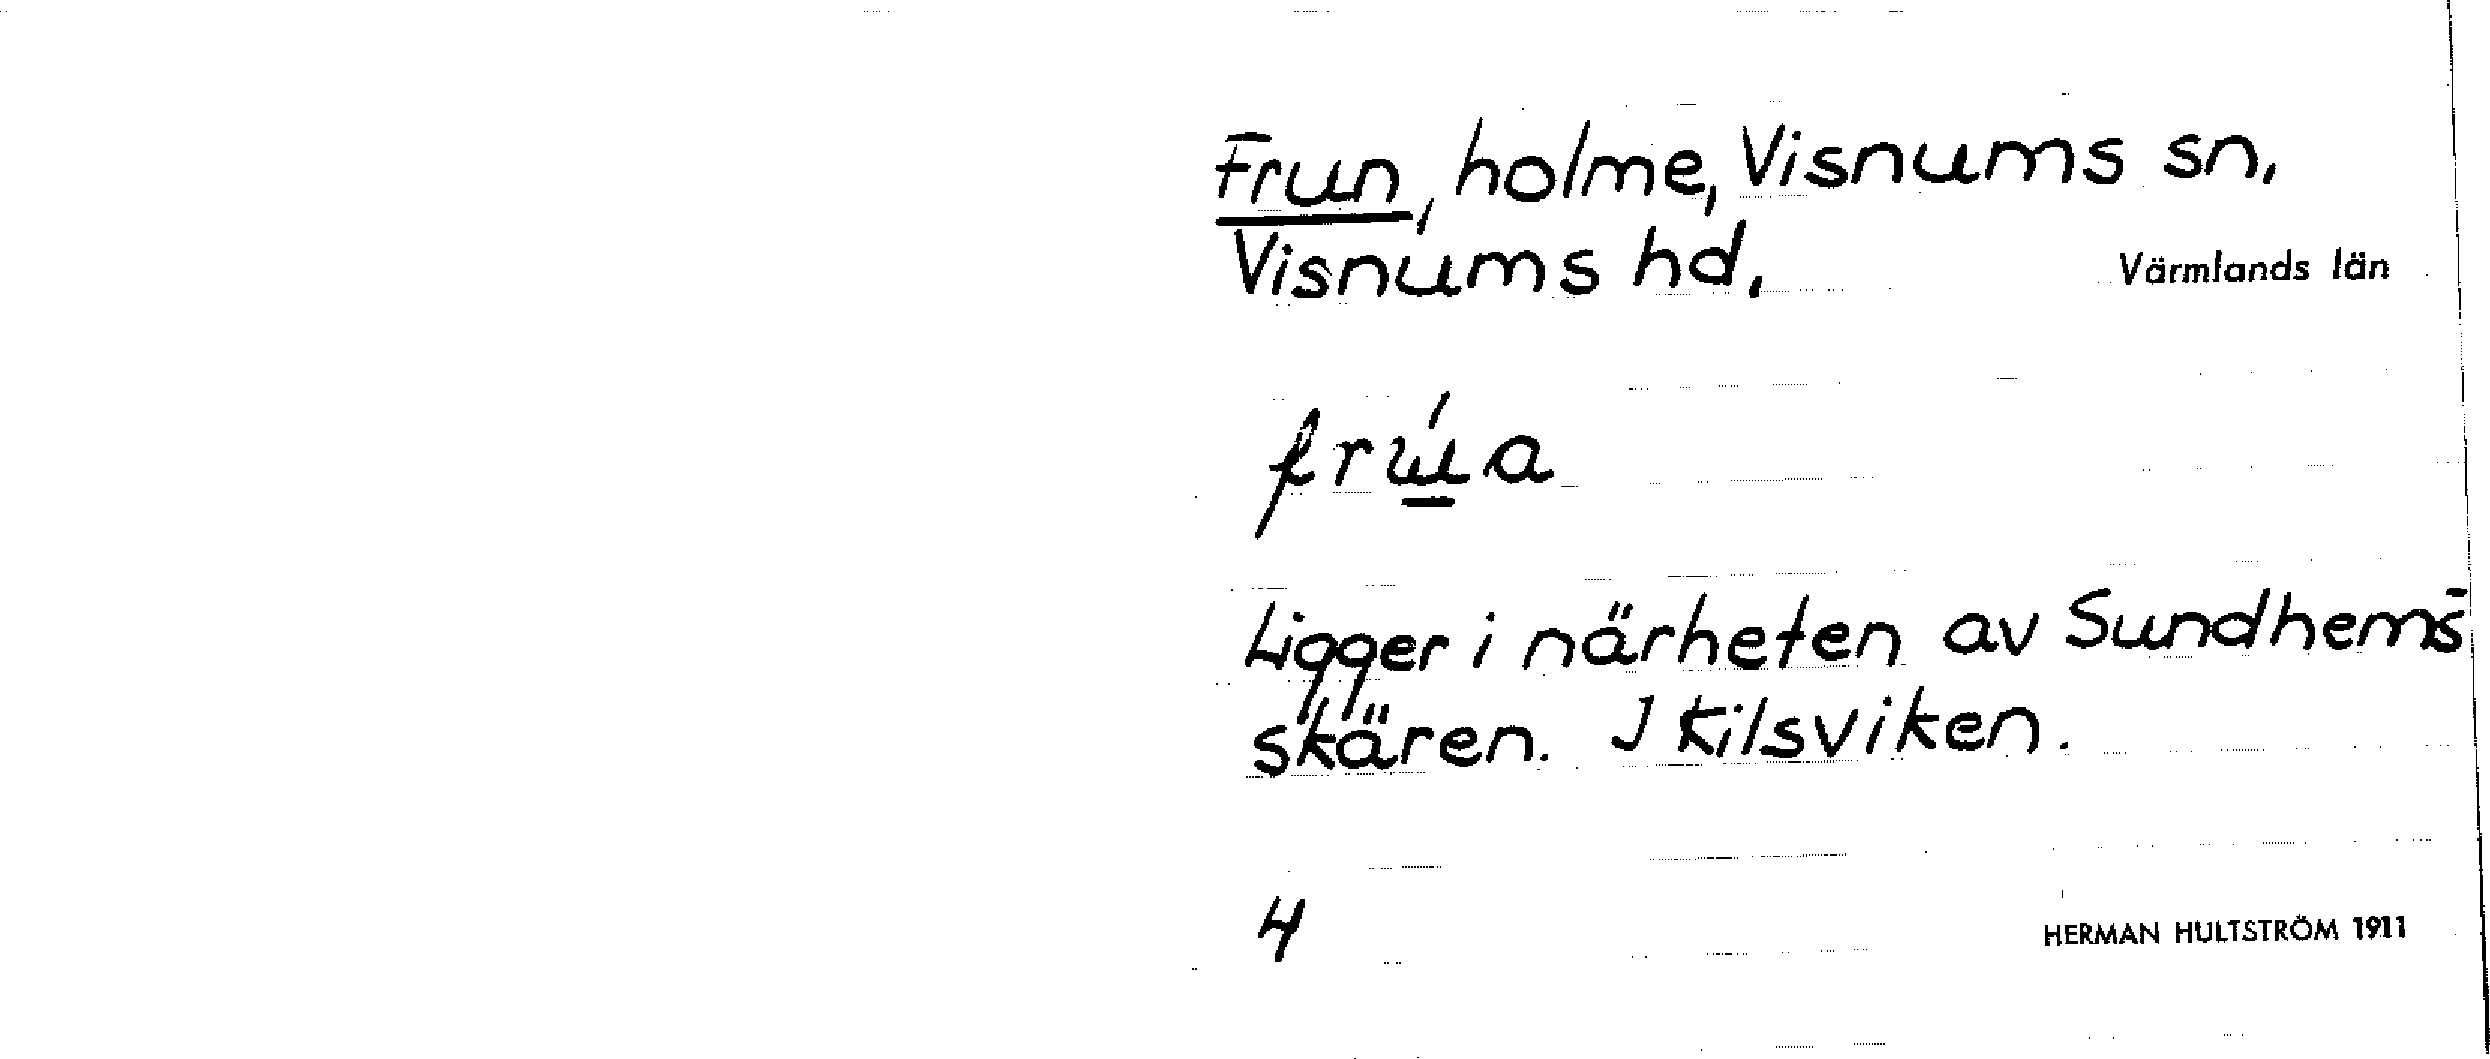 Frun, holme, Visnums sn,
Visnums hd, Värmlands län
frúa
Ligger i närheten av Sundhems-
skären. I Kilsviken.
4
HERMAN HULTSTRÖM 1911